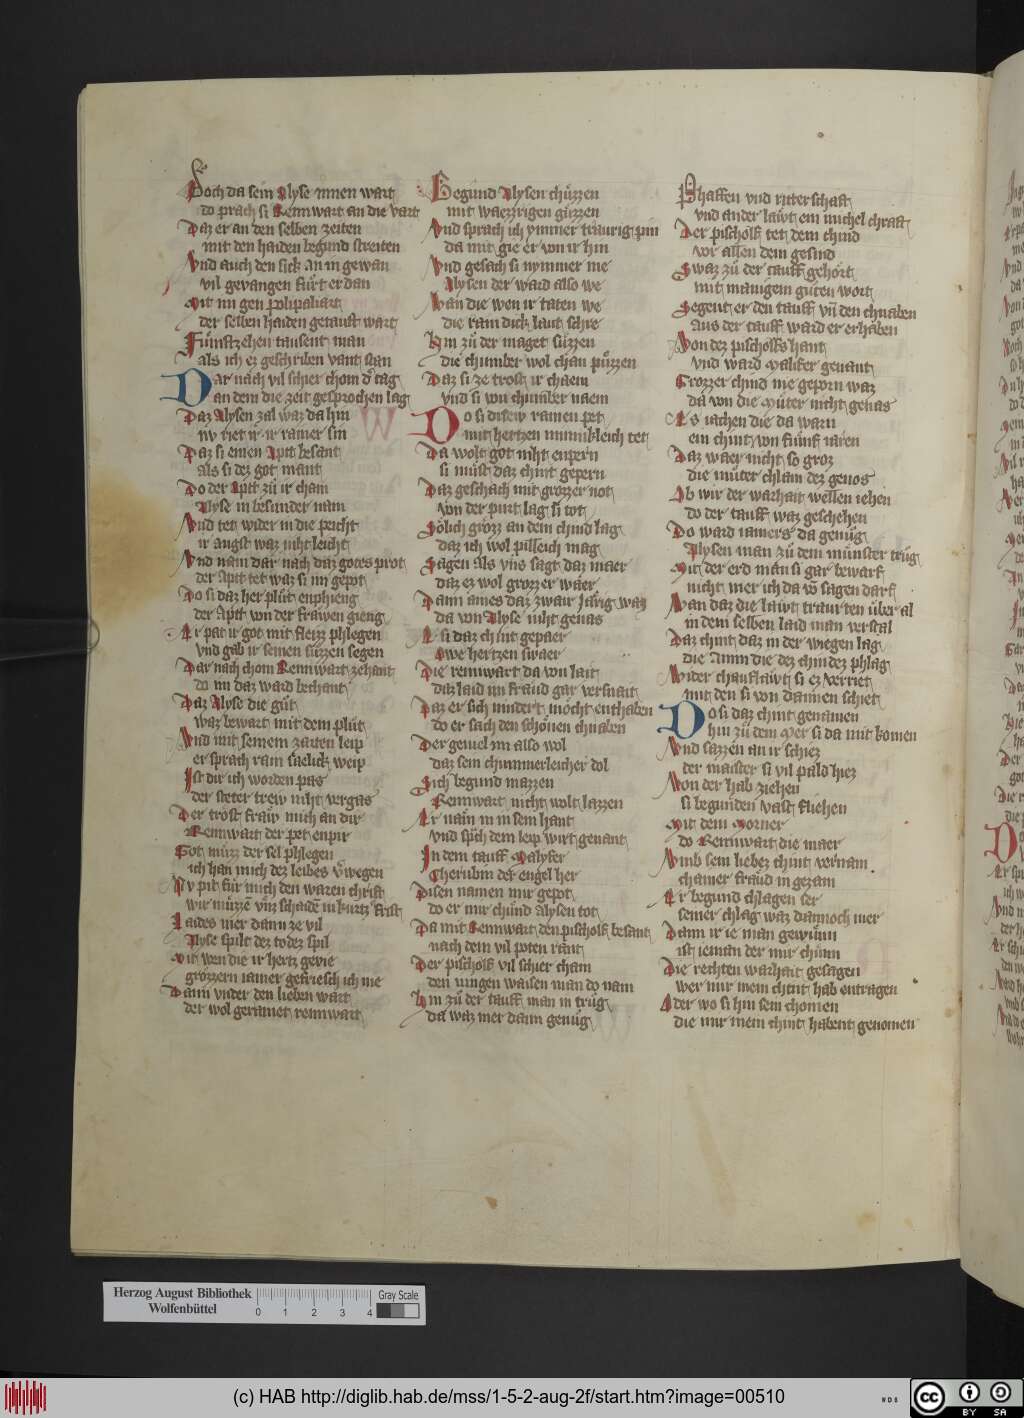 Doch da sein Alyse innen wart
do prach si Rennwart an die vart
Daz er an den selben zeiten
mit den haiden begund streiten
Vnd auch den sick an in gewan
vil gevangen fürt er dan
Mit im gen polipaliart
der selben haiden getauft wart
Fünftzehen tausent man
als ich ez geschriben vant stan
Dar nach vil schier chom d tag
an dem die zeit gesprochen lag
Daz Alysen zal waz da hin
nv riet ir ir ramer sin
Daz si einen Aptt besant
als si dez got mant
Do der Aptt zü ir cham
Alyse in besunder nam
Vnd tet wider in die peicht
ir angst waz niht leicht
Vnd nam dar nach daz gotes prot
der Aptt tet waz si im gepot
Do si daz her plüt enphieng
der Aptt von der frawen gieng
Er pat ir got mit fleizz phlegen
vnd gab ir seinen süzzen segen
Dar nach chom Rennwart zehant
do im daz ward bechant
Daz Alyse die güt
waz bewart mit dem plüt
Vnd mit seinem zarten leip
er sprach rain saelick weip
Ist dir ich worden pas
der steter trew niht vergas
Der tröst fraw mich an dir
Rennwart der pet enpir
Got müzz der sel phlegen
ich han mich dez leibes verwegen
Nv pit für mich den waren christ
wir müzzē vnz schaidē in kurtz frist
Laides mer dann ze vil
Alyse spilt dez todez spil
Mit wen die ir hertz gevie
grözzern iamer gefriesch ich nie
Dann vnder den lieben wart
der wol geramet rennwart
Begund Alysen chüzzen
mit waezzrigen güzzen
Vnd sprach ich ymmer traurig pin
da mit gie er von ir hin
Vnd gesach si nymmer me
Alysen der ward also we
Wan die wen ir taten we
die rain dick laut schre
Hin zü der maget süzzen
die chumber wol chan püzzen
Daz si ze trost ir chaem
vnd si von chumber naem
Do si disew ramen pet
mit hertzen innnikleich tet
Da wolt got niht enpern
si müst daz chint gepern
Daz geschach mit grozzer not
von der purt lag si tot
Sölich grözz an dem chind lag
daz ich wol pilleich mag
Sagen als vns sagt daz maer
daz ez wol grozzer waer
Dann aines daz zwair Jarig waz
da von Alyse niht genas
E si daz chint gepaer
Owe hertzen swaer
Die rennwart da von lait
daz laid im fraud gar versnait
Daz er sich mindert mocht enthaben
do er sach den schönen chnaben
Der geviel im also wol
daz sein chummerleicher dol
Sich begund mazzen
Rennwart nicht wolt lazzen
Er nam in in sein hant
vnd spch dem leip wirt genant
In dem tauff Malyfer
Cherubin der engel her
Disen namen mir gepot
do er mir chünd Alysen tot
Da mit Rennwart den pischolf besant
nach dem vil poten rant
Der pischolf vil schier cham
den iungen waisen man do nam
Hin zü der tauff man in trüg
da waz mer dann genüg
Phaffen vnd ritterschaft
vnd ander läwt ein michel chraft
Der pischolf tet dem chind
vor allen dem gesind
Swaz zü der tauff gehört
mit manigem güten wort
Segent er den tauff vn den chnaben
aus der tauff ward er erhaben
Von dez pischolfs hant
vnd ward Malifer genant
Grozzer chind nie geporn waz
da von die Müter nicht genas
Es iachen die da warn
ein chint von fünf iaren
Daz waer nicht so groz
die müter chlain dez genos
Ob wir der warhait wellen iehen
do der tauff waz geschehen
Do ward iamers da genüg
Alysen man zü dem münster trüg
Mit der erd man si gar bewarf
nicht mer ich da vō sagen darf
Wan daz die läwt traurten über al
in dem selben laid man verstal
Daz chint daz in der wiegen lag
die Amm die dez chindez phlag
Wider chauflawt si ez verriet
mit den si von dannen schiet
Do si daz chint genamen
hin zü dem Mer si da mit komen
Vnd sazzen an ir schiez
der maister si vil pald hiez
Von der hab ziehen
si begunden vast fliehen
Mit dem Morner
do Rennwart die maer
Vmb sein liebez chint vernam
chainer fraud in gezam
Er begund chlagen ser
seiner chlag waz dannoch mer
Dann ir ie man gewünn
ist ieman der mir chünn
Die rechten warhait gesagen
wer mir mein chint hab entragen
Oder wo si hin sein chomen
die mir mein chint habent genomen
Herzog August Bibliothek
Wolfenbüttel
0 1 2 3 4
Gray Scale
(c) HAB http://diglib.hab.de/mss/1-5-2-aug-2f/start.htm?image=00510
WDB
cc BY SA